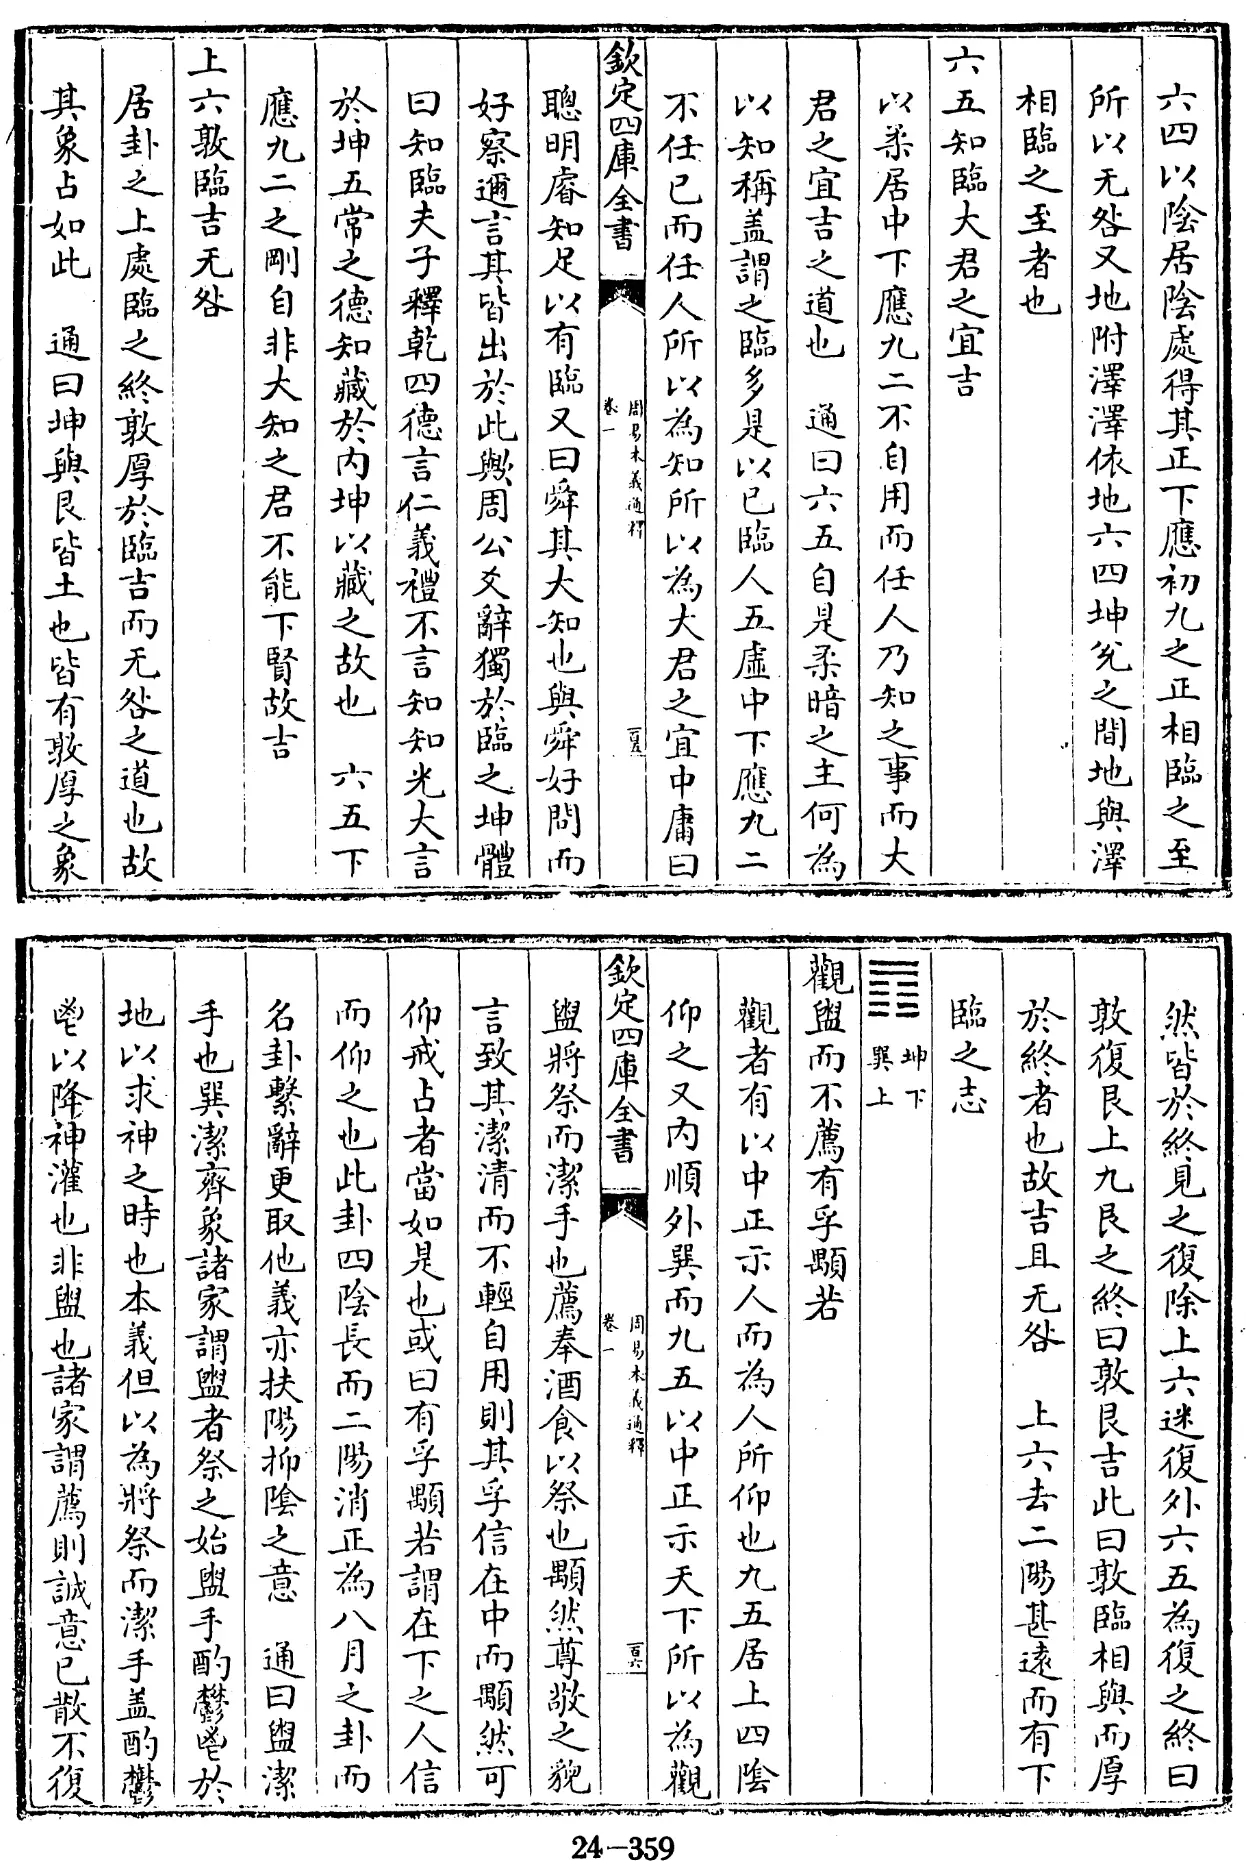 六四以陰居陰處得其正下應初九之正相臨之至
所以无咎又地附澤澤依地六四坤兌之間地與澤
相臨之至者也
六五知臨大君之宜吉
以柔居中下應九二不自用而任人乃知之事而大
君之宜吉之道也　通曰六五自是柔暗之主何為
以知稱盖謂之臨多是以已臨人五虛中下應九二
不任已而任人所以為知所以為大君之宜中庸曰
欽定四庫全書
周易本義通釋
卷一
聰明睿知足以有臨又曰舜其大知也與舜好問而
好察邇言其皆出於此歟周公爻辭獨於臨之坤體
曰知臨夫子釋乾四德言仁義禮不言知知光大言
於坤五常之德知藏於内坤以藏之故也　六五下
應九二之剛自非大知之君不能下賢故吉
上六敦臨吉无咎
居卦之上處臨之終敦厚於臨吉而无咎之道也故
其象占如此　通曰坤與艮皆土也皆有敦厚之象
然皆於終見之復除上六迷復外六五為復之終曰
敦復艮上九艮之終曰敦艮吉此曰敦臨相與而厚
於終者也故吉且无咎　上六去二陽甚遠而有下
臨之志
䷓
坤下
巽上
觀盥而不薦有孚顒若
觀者有以中正示人而為人所仰也九五居上四陰
仰之又内順外巽而九五以中正示天下所以為觀
欽定四庫全書
周易本義通釋
卷一
盥將祭而潔手也薦奉酒食以祭也顒然尊敬之貌
言致其潔清而不輕自用則其孚信在中而顒然可
仰戒占者當如是也或曰有孚顒若謂在下之人信
而仰之也此卦四陰長而二陽消正為八月之卦而
名卦繫辭更取他義亦扶陽抑陰之意　通曰盥潔
手也巽潔齊象諸家謂盥者祭之始盥手酌鬱鬯於
地以求神之時也本義但以為將祭而潔手盖酌鬱
鬯以降神灌也非盥也諸家謂薦則誠意已散不復
24-359